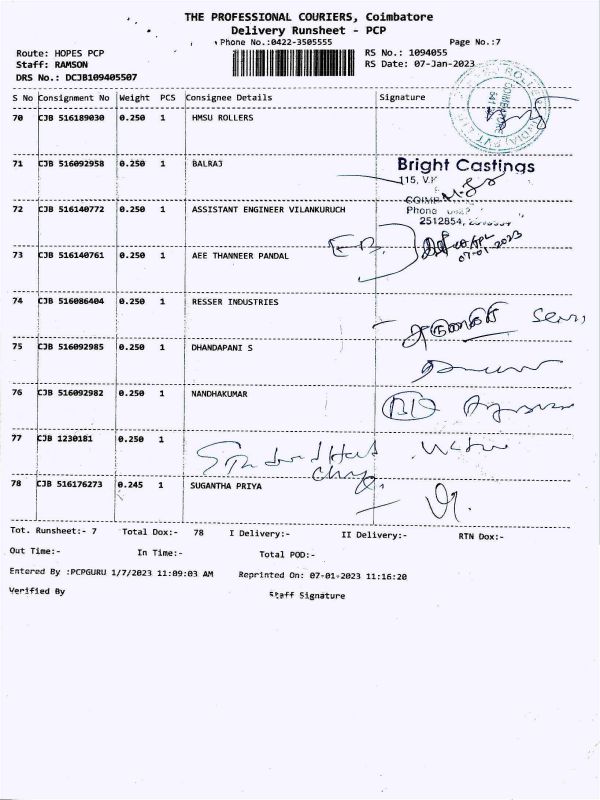 THE PROFESSIONAL COURIERS, Coimbatore
Delivery Runsheet - PCP
Phone No.:0422-3505555 Page No.:7
Route: HOPES PCP RS No.: 1094055
Staff: RAMSON RS Date: 07-Jan-2023
DRS No.: DCJB109405507
S No Consignment No Weight PCS Consignee Details Signature
70 CJB 516189030 0.250 1 HMSU ROLLERS
71 CJB 516092958 0.250 1 BALRAJ
Bright Castings
115, V.K
72 CJB 516140772 0.250 1 ASSISTANT ENGINEER VILANKURUCH
Phone
2512854,
73 CJB 516140761 0.250 1 AEE THANNEER PANDAL
E.B.
07-01-2023
74 CJB 516086404 0.250 1 RESSER INDUSTRIES
75 CJB 516092985 0.250 1 DHANDAPANI S
76 CJB 516092982 0.250 1 NANDHAKUMAR
77 CJB 1230181 0.250 1
78 CJB 516176273 0.245 1 SUGANTHA PRIYA
Tot. Runsheet:- 7 Total Dox:- 78 I Delivery:- II Delivery:- RTN Dox:-
Out Time:- In Time:- Total POD:-
Entered By :PCPGURU 1/7/2023 11:09:03 AM Reprinted On: 07-01-2023 11:16:20
Verified By Staff Signature